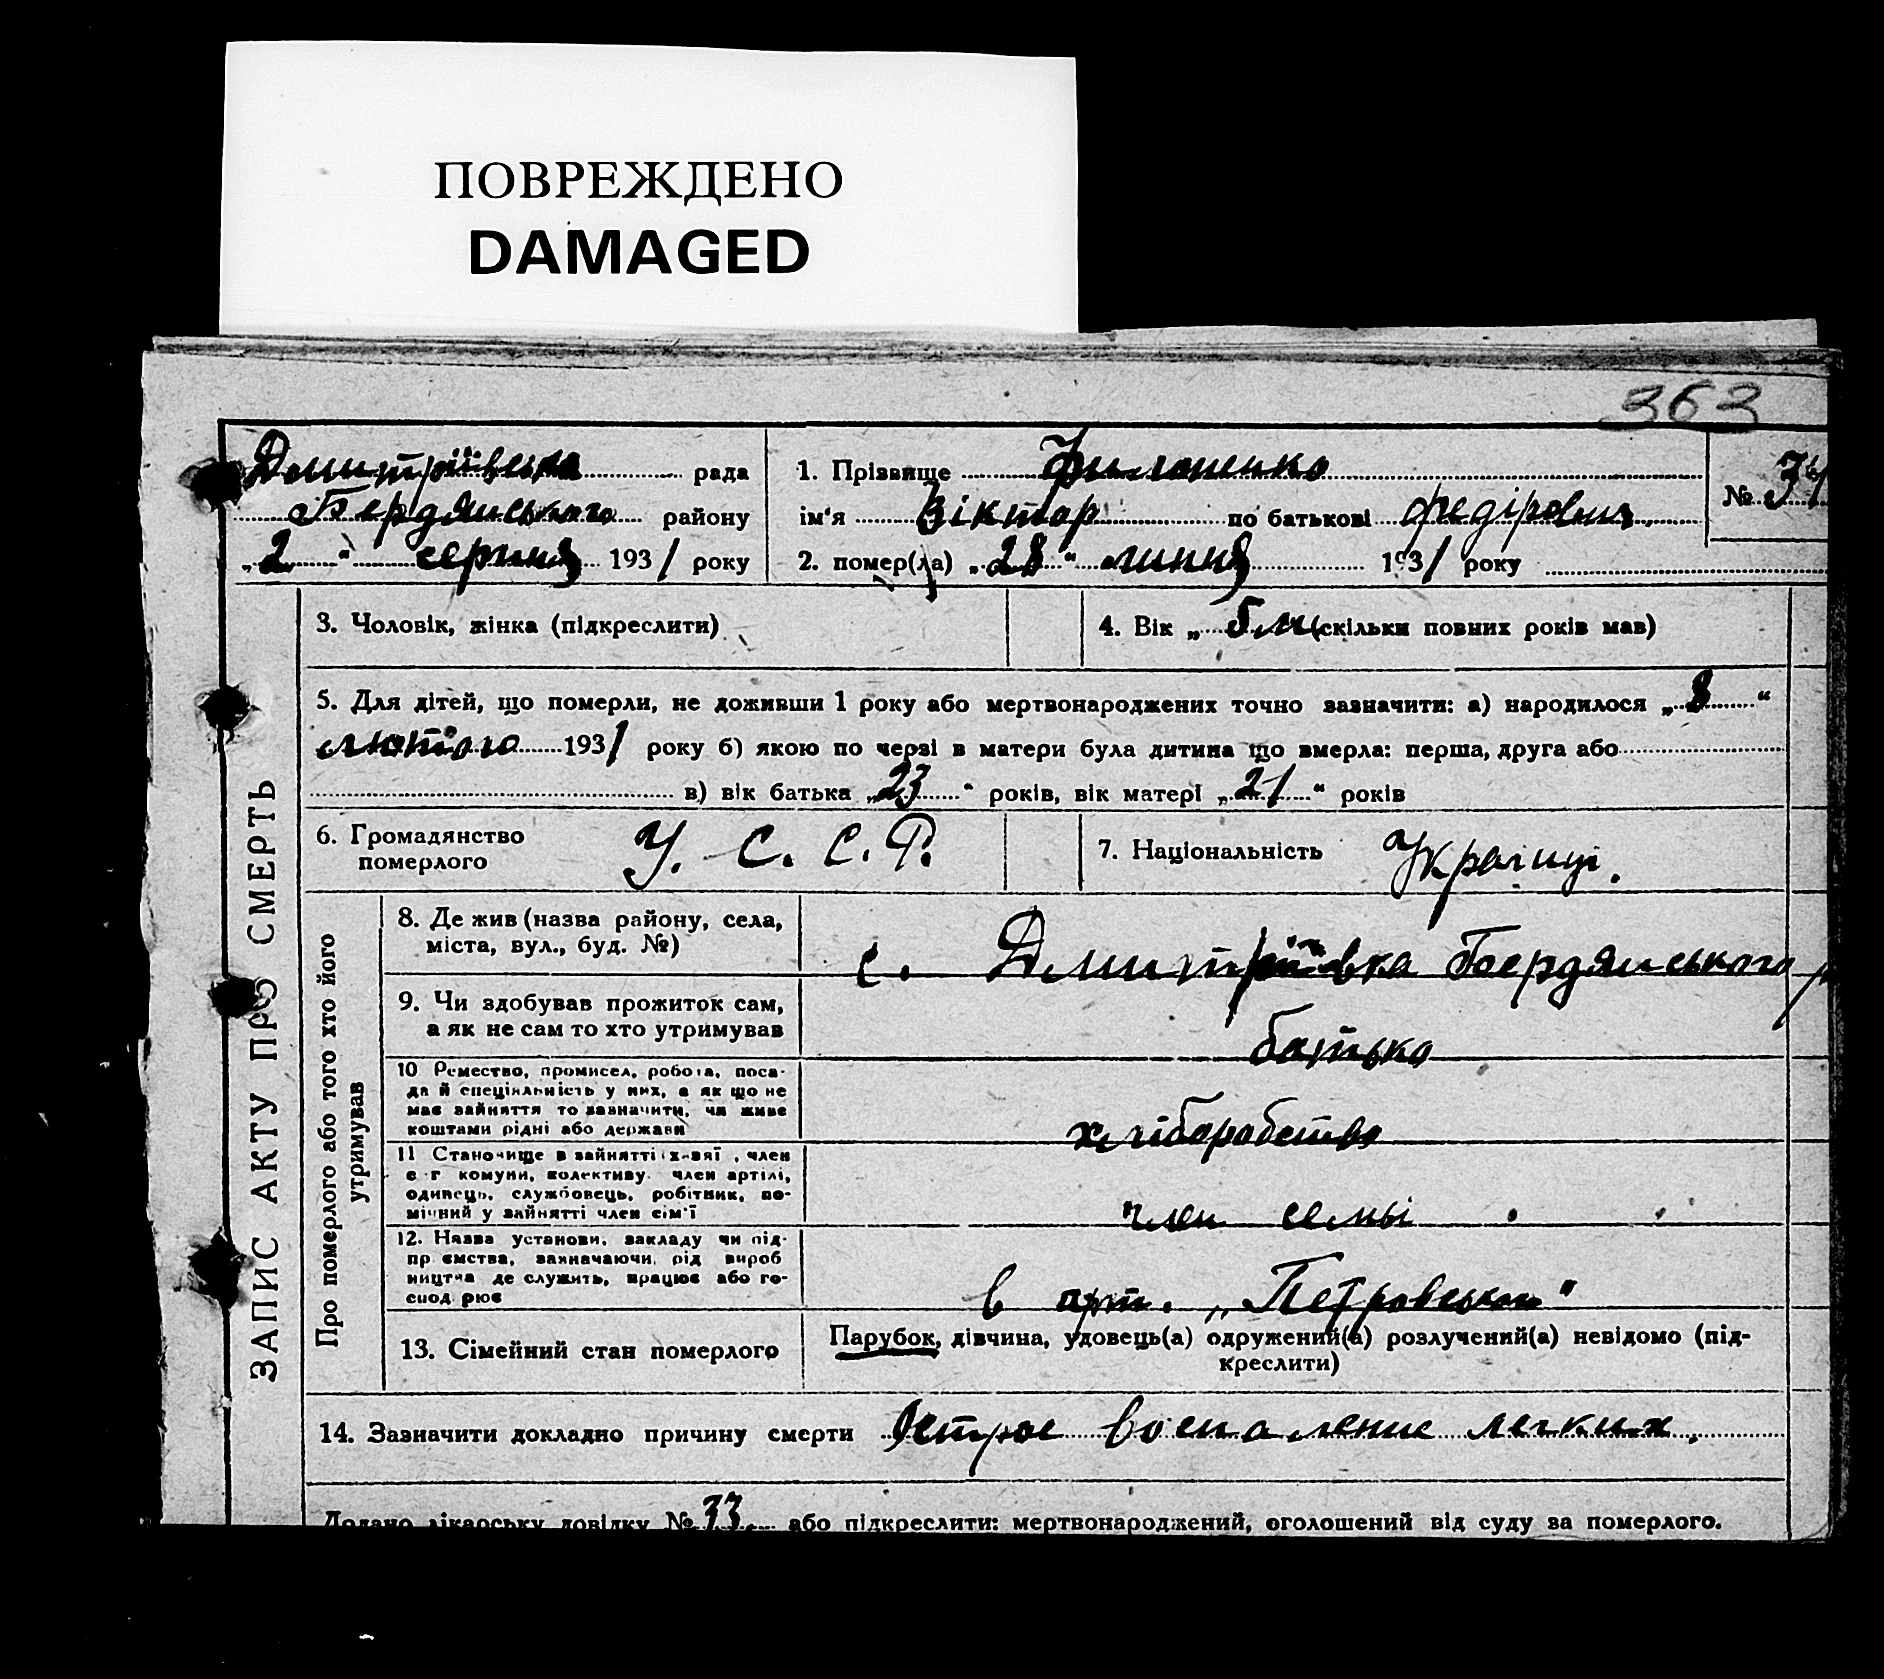 ПОВРЕЖДЕНО
DAMAGED
363
Дмитріївська рада
Бердянського району
„2“ серпня 1931 року
1. Прізвище Филоненко
ім'я Віктор по батькові Федірович
2. помер(ла) „28“ липня 1931 року
№ 34
3. Чоловік, жінка (підкреслити)
4. Вік „5 м (скільки повних років мав)
5. Для дітей, що померли, не доживши 1 року або мертвонароджених точно зазначити: а) народилося „8“
лютого 1931 року б) якою по черзі в матери була дитина що вмерла: перша, друга або
в) вік батька „23“ років, вік матері „21“ років
6. Громадянство
померлого
У. С. С. Р.
7. Національність Україці.
ЗАПИС АКТУ ПРО СМЕРТЬ
Про померлого або того хто його
утримував
8. Де жив (назва району, села,
міста, вул., буд. №)
с. Дмитріївка Бердянського р
9. Чи здобував прожиток сам,
а як не сам то хто утримував
батько
10 Ремество, промисел, робота, поса-
да й спеціальність у них, а як що не
має зайняття то зазначити, чи живе
коштами рідні або держави
хліборобство
11 Становище в зайнятті: хазяї, член
с-г комуни, колективу, член артілі,
одинець, службовець, робітник, по-
мічний у зайнятті член сім'ї
член семьі
12. Назва установи, закладу чи під-
приємства, зазначаючи, рід вироб
ництва де служить, працює або го-
спод рює
в арт. „Петровського"
13. Сімейний стан померлого
Парубок, дівчина, удовець(а) одружений(а) розлучений(а) невідомо (під-
креслити)
14. Зазначити докладно причину смерти Острое воспаление легких.
Додано лікарську довідку № 33 або підкреслити: мертвонароджений, оголошений від суду за померлого.